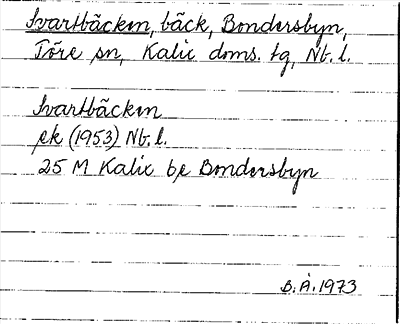 Svartbäcken, bäck, Bondersbyn,
Töre sn, Kalix doms. tg, Nb. l.
Svartbäcken
ek (1953) Nb. l.
25 M Kalix be Bondersbyn
B. Å. 1973